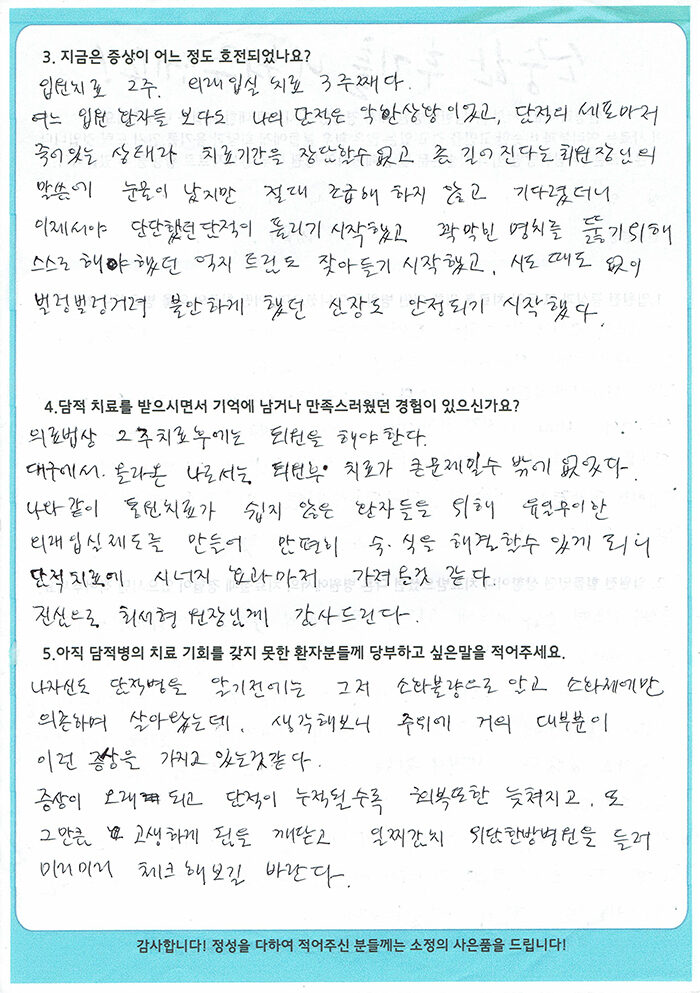 3. 지금은 증상이 어느 정도 호전되었나요?
입원치료 2주. 외래입실 치료 3주째다.
여느 입원 환자들 보다도 나의 담적은 악한상황이었고, 담적의 세포마저
죽어있는 상태라 치료기간을 장담할수 없고 좀 길어진다는 최원장님의
말씀에 눈물이 났지만 절대 조급해 하지 않고 기다렸더니
이제서야 단단했던 담적이 풀리기 시작했고 꽉막힌 명치를 뚫기위해
스스로 해야했던 억지 트림도 잦아들기 시작했고, 시도 때도 없이
벌렁벌렁거려 불안하게 했던 심장도 안정되기 시작했다.
4.담적 치료를 받으시면서 기억에 남거나 만족스러웠던 경험이 있으신가요?
의료법상 2주치료후에는 퇴원을 해야한다.
대구에서 올라온 나로서는 퇴원후 치료가 큰문제일수 밖에 없었다.
나와같이 통원치료가 쉽지 않은 환자들을 위해 유일무이한
외래입실제도를 만들어 맘편히 숙.식을 해결할수 있게 되니
담적치료에 시너지 효과마저 가져온것 같다.
진심으로 최서형 원장님께 감사드린다.
5.아직 담적병의 치료 기회를 갖지 못한 환자분들께 당부하고 싶은말을 적어주세요.
나자신도 담적병을 알기전에는 그저 소화불량으로 알고 소화제에만
의존하며 살아왔는데, 생각해보니 주위에 거의 대부분이
이런 증상을 가지고 있는것같다.
증상이 오래 되고 담적이 누적될수록 회복또한 늦쳐지고. 또
그만큼 고생하게 됨을 깨닫고 일찌감치 위담한방병원을 들려
미리미리 체크해보길 바란다.
감사합니다! 정성을 다하여 적어주신 분들께는 소정의 사은품을 드립니다!